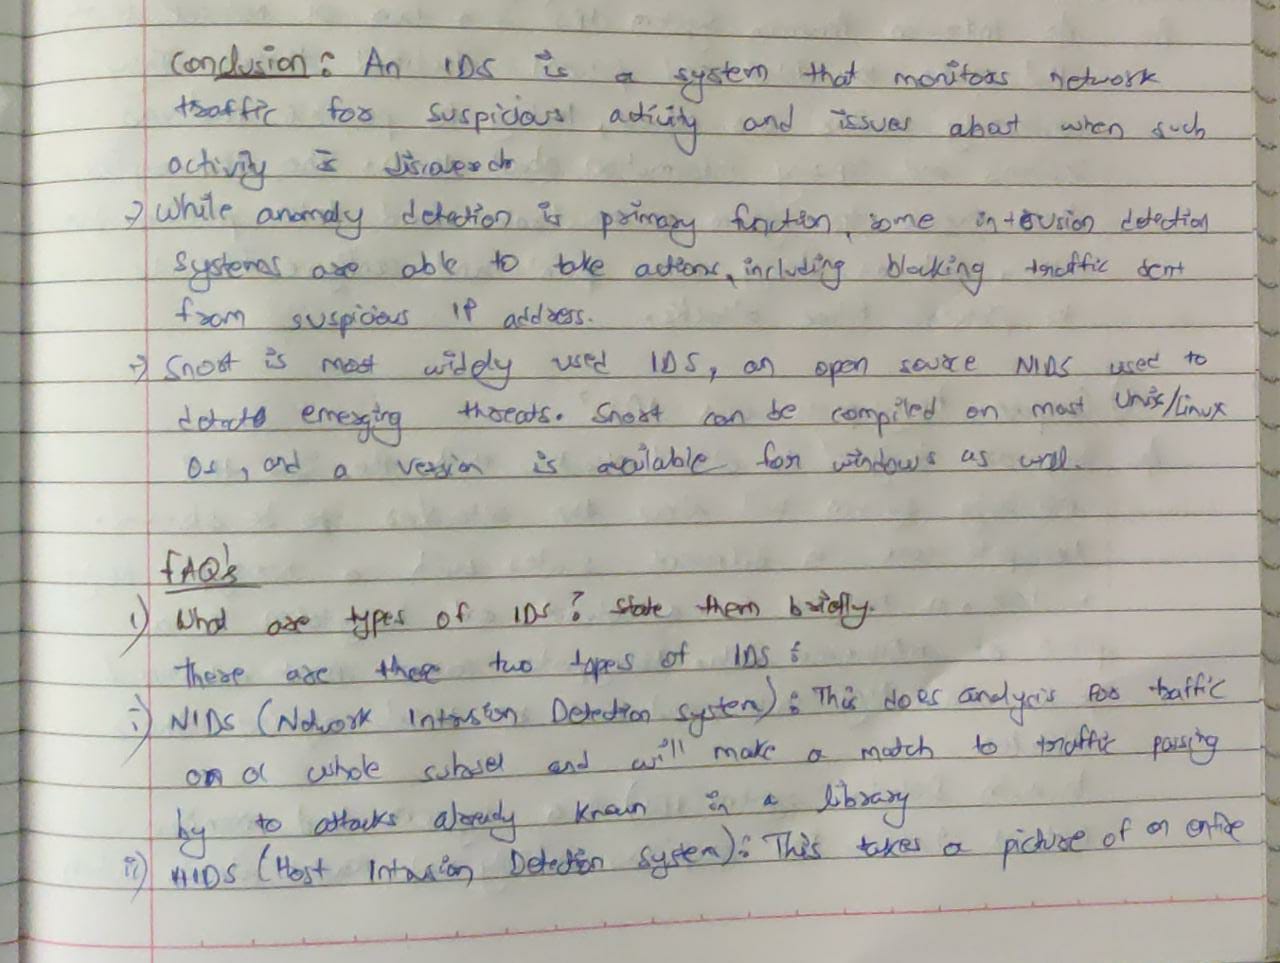 Conclusion : An IDS is a system that monitors network
traffic for suspicious activity and issues when such
activity is
→ While anomaly detection is primary function, some intrusion detection
systems are able to take actions, including blocking traffic sent
from suspicious IP address.
→ Snort is most widely used IDS, an open source NIDS used to
detect emerging threats. Snort can be compiled on most Unix/Linux
Os, and a version is available for windows as well.
FAQ's
1) What are types of IDS? State them briefly.
There are these two types of IDS :
i) NIDS (Network Intrusion Detection system) : This does analysis for traffic
on a whole subset and will make a match to traffic passing
by to attacks already known in a library
ii) HIDS (Host Intrusion Detection system) : This takes a picture of an entire